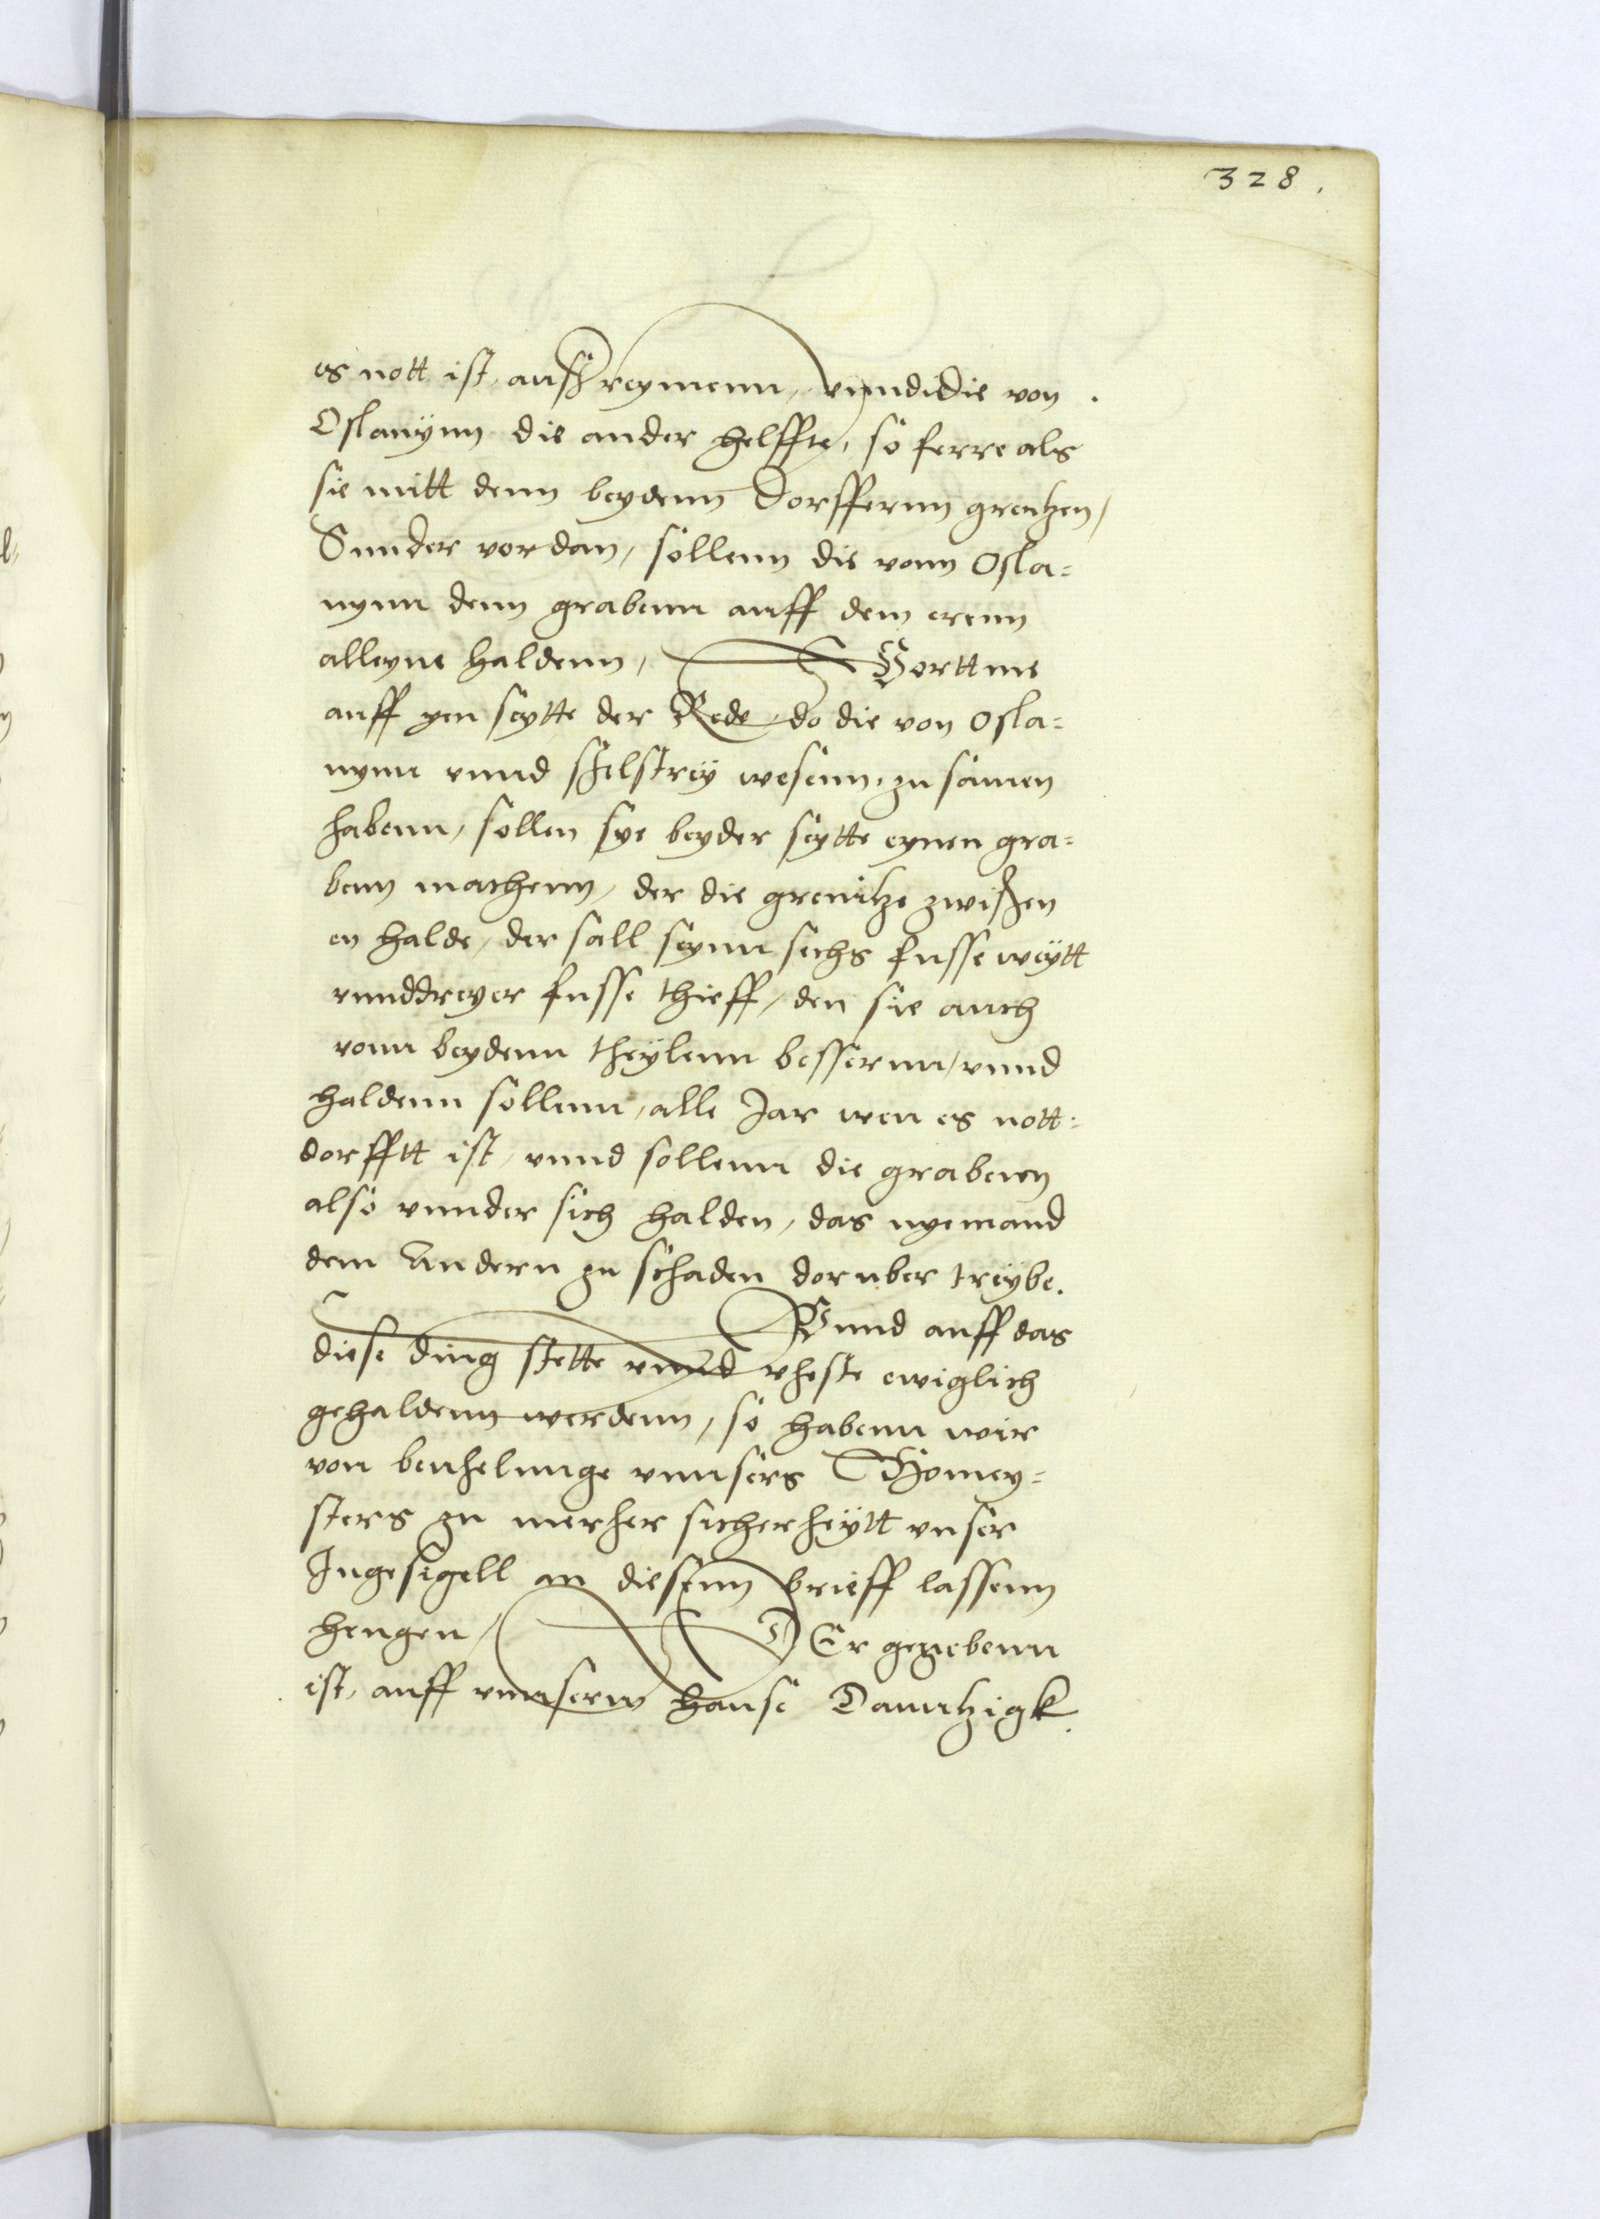 328.
es nott ist, außreymenn, vnnd die von
Oslanÿnn die ander helffte, so ferre als
sie mitt denn beydenn Dorffernn grentzen,
Sunder vordan, sollenn die vonn Osla=
nynn denn grabenn auff dem erenn
alleyne haldenn, Vorttme
auff yen seytte der Rede, do die von Osla=
nynn vnnd stelstreÿ wesenn, zu samen
habenn, sollen sye beyder seytte eynen gra=
benn machenn, der die grenitze zwißen
en halde, der sall seynn sechs fusse weÿtt
vnnd dreyer fusse thieff, den sie auch
vonn beydenn theÿlenn bessernn, vnnd
haldenn sollenn, alle Jar wen es nott=
dorfftt ist, vnnd sollenn die grabenn
also vnnder sich halden, das nyemand
dem Andern zu schaden doruber treybe.
Vnnd auff das
diese ding stette vnnd vheste ewiglich
gehaldenn werdenn, so habenn wir
von beuhelunge vnnsers Homey=
sters zu merher sicherheÿtt vnser
Ingesigell an diesenn brieff lassenn
hengen, DEr gegebenn
ist, auff vnnserm hause Danntzigk